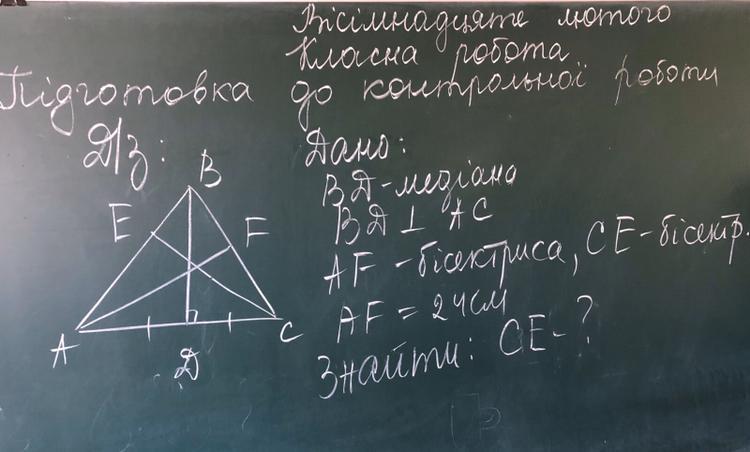 Вісімнадцяте лютого
Класна робота
Підготовка до контрольної роботи
Д/з:
Дано:
BD-медіана
BD ⊥ AC
AF - бісектриса, CE - бісектр.
AF = 24см
Знайти: CE - ?
B
E
F
A
C
D